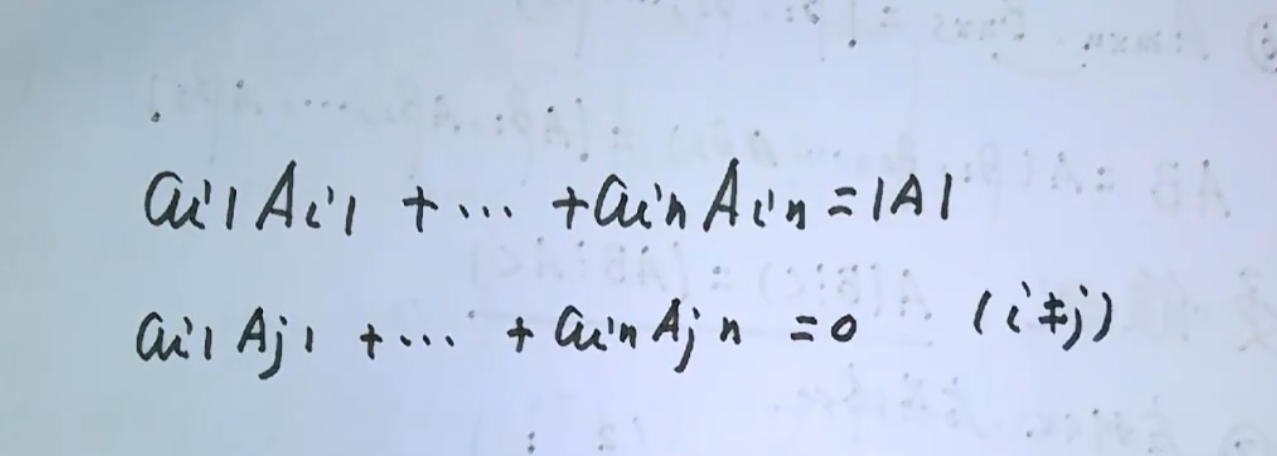 ai1 Ai1 + ... + ain Ain = |A|
ai1 Aj1 + ... + ain Ajn = 0 (i ≠ j)